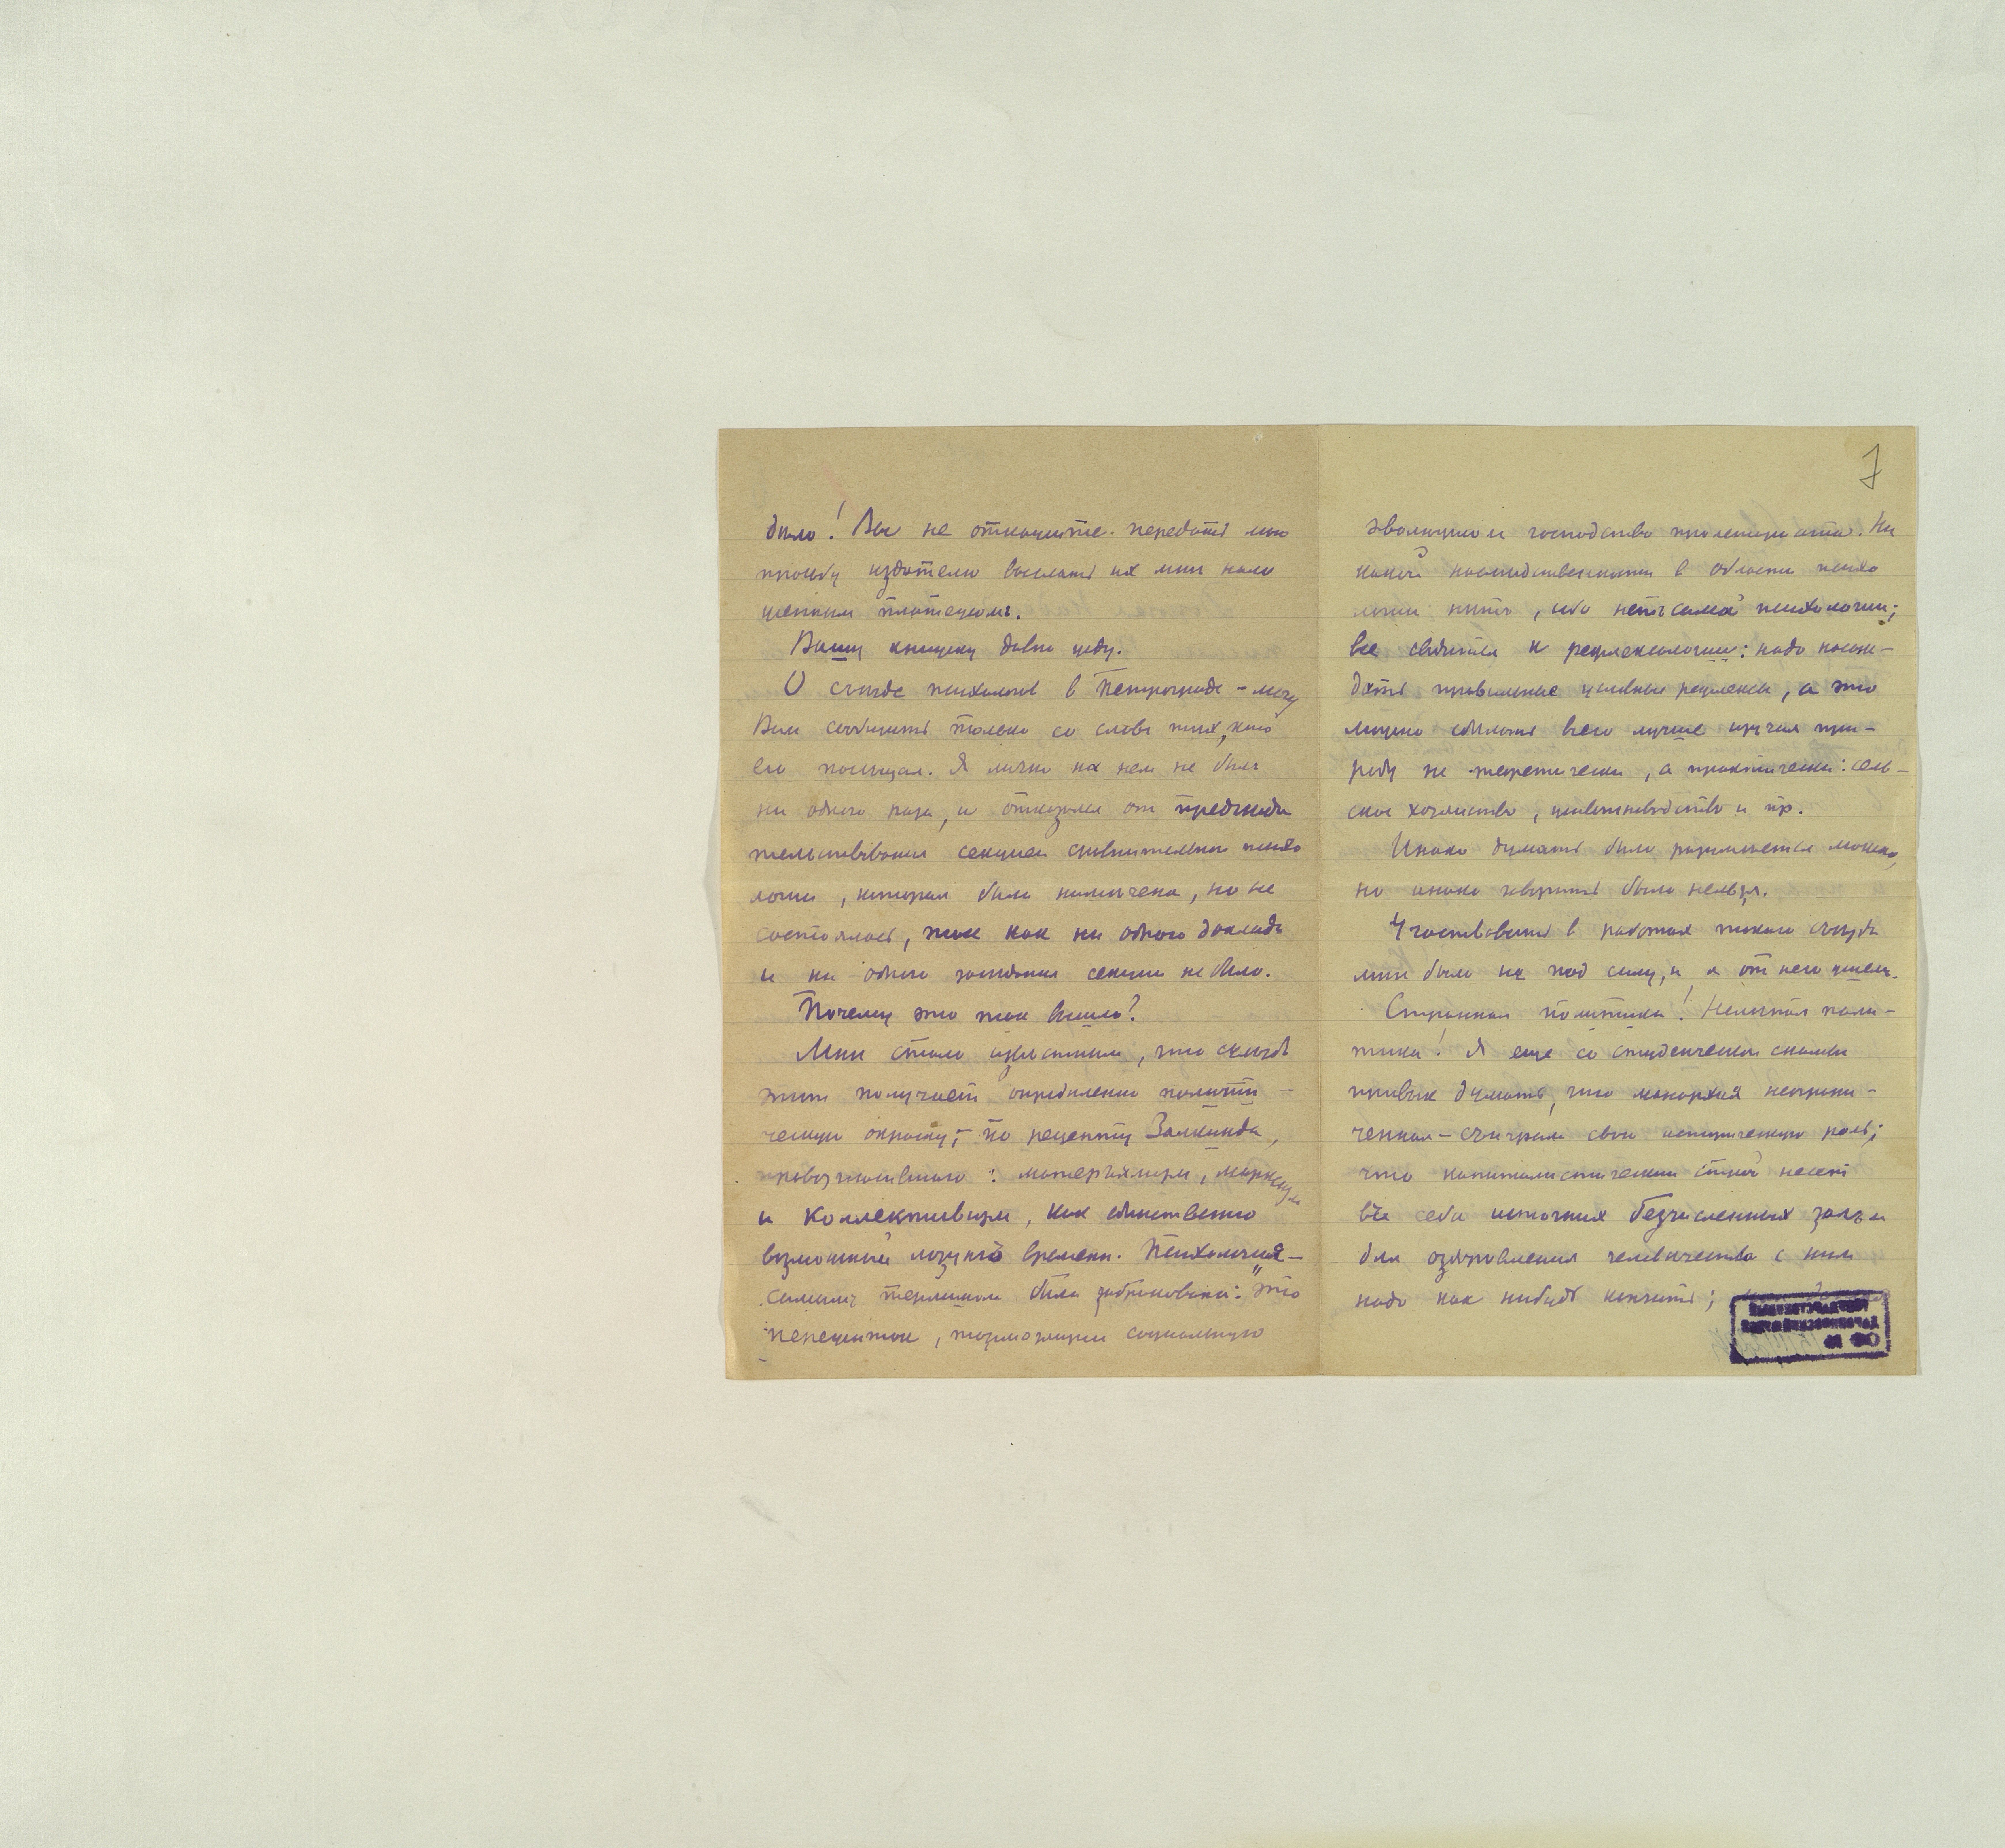 было! Вы не откажите передать мою
просьбу издателю выслать их мне нало
женным платежом.
Вашу книжку давно жду.
О съезде психологов в Петрограде – могу
Вам сообщить только со слов тех, кто
его посещал. Я лично на нем не был
ни одного раза, и отказался от председа
тельствования секцией сравнительной психо
логии, которая была намечена, но не
состоялась, так как ни одного доклада
и ни одного заседания секции не было.
Почему это так вышло?
Мне стало известным, что съезд
этот получает определенно полити–
ческую окраску, – по рецепту Залкинда,
провозгласившего: материализм, марксизм
и коллективизм, как единственно
возможный лозунг времени. Психология –
самым термином была забракована: "это
пережиток, тормозящий социальную
7
эволюцию и господство пролетариата. Ни
какой наследственности в области психо
логии нет, ибо нет самой психологии;
все сводится к рефлексологии: надо насаж–
дать правильные условные рефлексы, а это
можно сделать всего лучше изучая при–
роду не теоретически, а практически: сель–
ское хозяйство, животноводство и пр.
Иначе думать было разумеется можно,
но иначе говорить было нельзя.
Участвовать в работах такого съезда
мне было не под силу, и я от него ушел.
Странная политика! Нелепая поли–
тика! Я еще со студенческой скамьи
привык думать, что монархия неограни–
ченная – сыграла свою историческую роль;
что капиталистический строй несет
в себе источник безчисленных зол и
для оздоровления человечества с ним
надо как нибудь кончить;